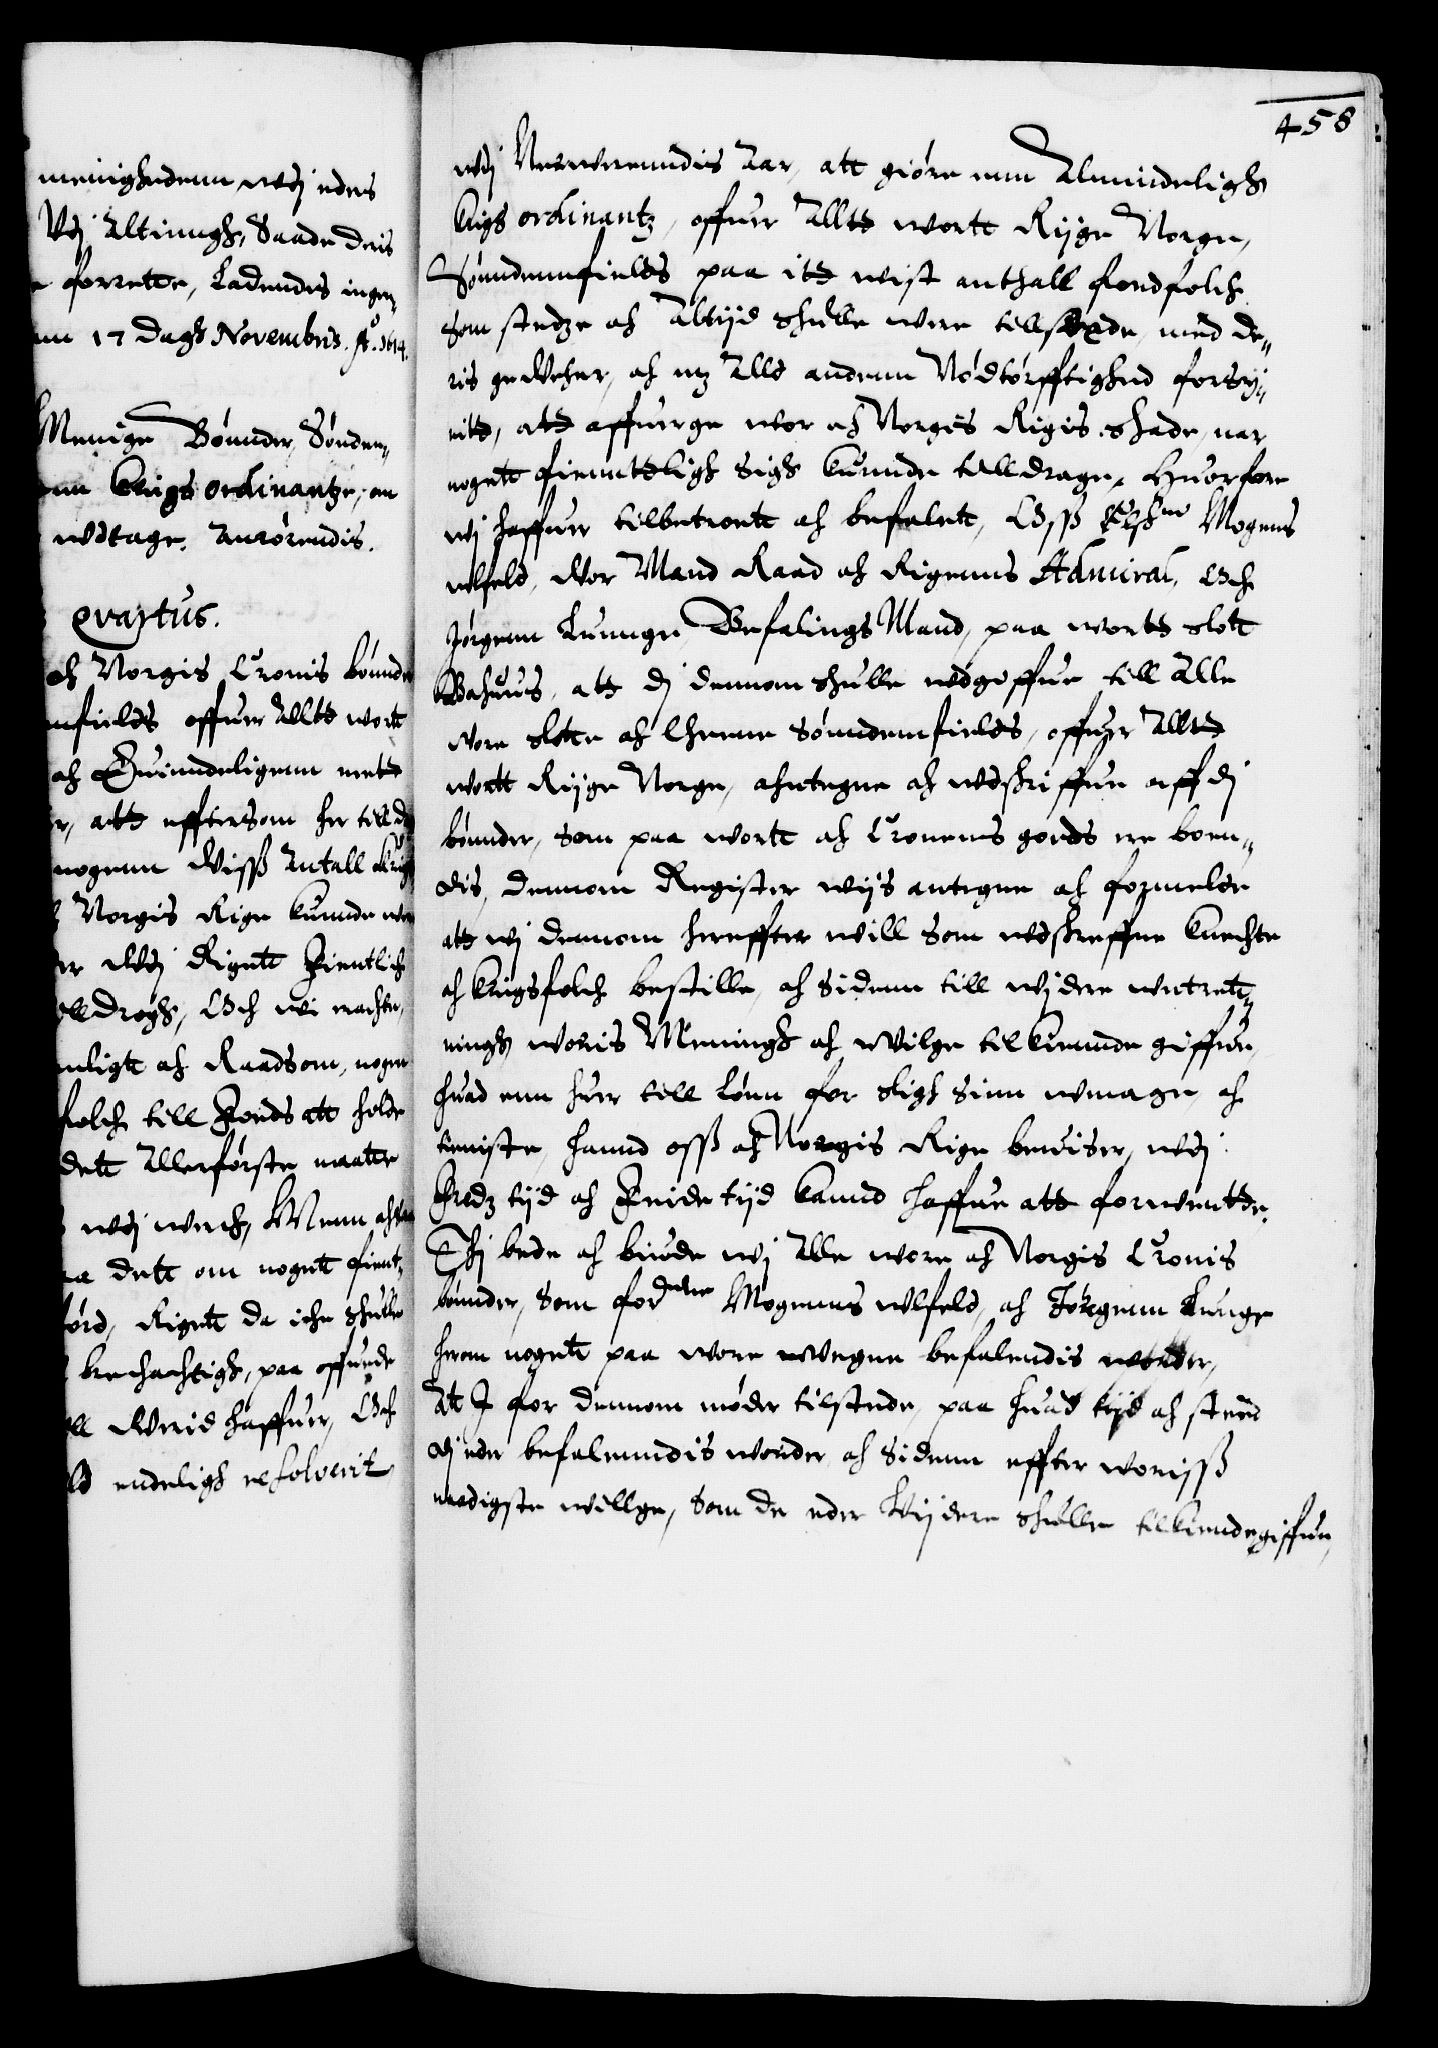 menighedenn wdj eders
Wdj Altinngh, Saade deris
forrette, Ladendis ingen
17 Dagh Novembris. Ao. 1614.
Menige Bønnder, Sønden¬
Krigs ordinantze, om
wdtage. Anrørendis.
qvartus.
och Norgis Cronis bønnder
nfields offuer alltt wortt
och Quinndeligenn mett
att effttersom her till
nogenn Wiss Antall krigs
Norgis Rige kunnde were
Wdj Rigett Fientlich
lldrogh, Och wi nachte,
nligt och Raadsom, nogen
folch till Fouds att holde
dett Allerførste maatte
wdj werch, Menn
dett om nogett fient¬
førd, Rigett da iche skulle
krechachtigh, paa offuede
Werid haffuer, Och
endeligh resolverit
458
wdj Nerwerenndis Aar, att giøre enn Almindeligh
krigs ordinantz, offuer Alltt wortt Rijge Norge,
Sønndennfields paa itt wist anthall fondfolch
som stedze och Altijd skulle were till stede, med de¬
ris geWeher, och mz Alld andenn Nødtørfftighed forsij¬
nitt, att affuerge wor och Norgis Rigis skade, nar
nogett fienntteligh sigh kunnde tilldrage, Huorfore
wj haffuer tilbetroett och befalett, Oss Elskne Mogens
wlfeld, Wor Mand Raad och Rigenns Admiral, Och
Jørgenn Lunnge, BefalingsMand, paa wortt slott
Bahuus, att dj dennom skulle wdgiffue till Alle
wore slotte och Lhenne Sønndenfields, offuer Alltt
wortt Rijge Norge, antegne och wdskriffue aff dj
bønnder, som paa wortt och Cronenns gouds ere boen¬
dis, dennom Register wijs antegne och formelde
att wj dennom hereffter will som wdskreffne knechte
och krigsfolch bestille, och sidenn till wijdere wntrett¬
ningh woris Meningh och Wilge tilkiennde giffue,
huad enn huer till Lønn for sligh sinn wmage, och
tieniste, hannd oss och Norgis Rige beuiser, wdj
Fredz tijd och Feide tijd kannd haffue att forwentte.
Thj bede och biude wj Alle wore och Norgis Cronis
bønnder, Som fordne Mogenns wlfeld, och Jøregenn Lunge
herom nogett paa wore Wegne befalendis worder,
At I for dennom møder tilstede, paa huad tijd och steed
dj eder befalenndis worder och sidenn effter woriss
naadigste willge, som de eder Wijdere skulle tilkiendegiffue,